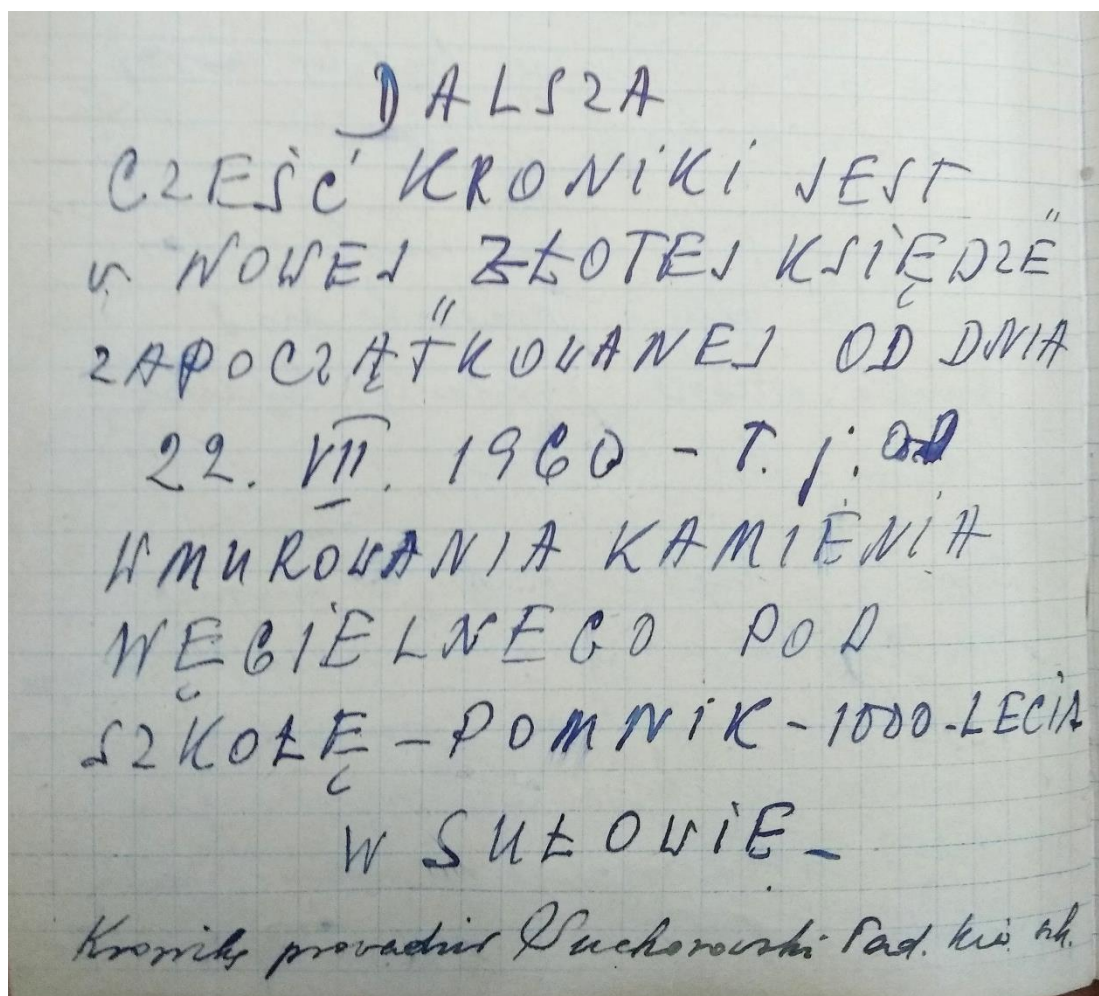 DALSZA
CZEŚĆ KRONiKi JEST
w NOWEJ "ZŁOTEJ KSIĘDZE"
ZAPOCZĄTKOWANEJ OD DNIA
22. VII. 1960 - T. j. OD
WMUROWANIA KAMIENIA
WĘGIELNEGO POD
SZKOŁĘ - POMNiK - 1000-LECIA
W SUŁOWiE -
Kronikę prowadził Suchorowski Tad. kier. szk.